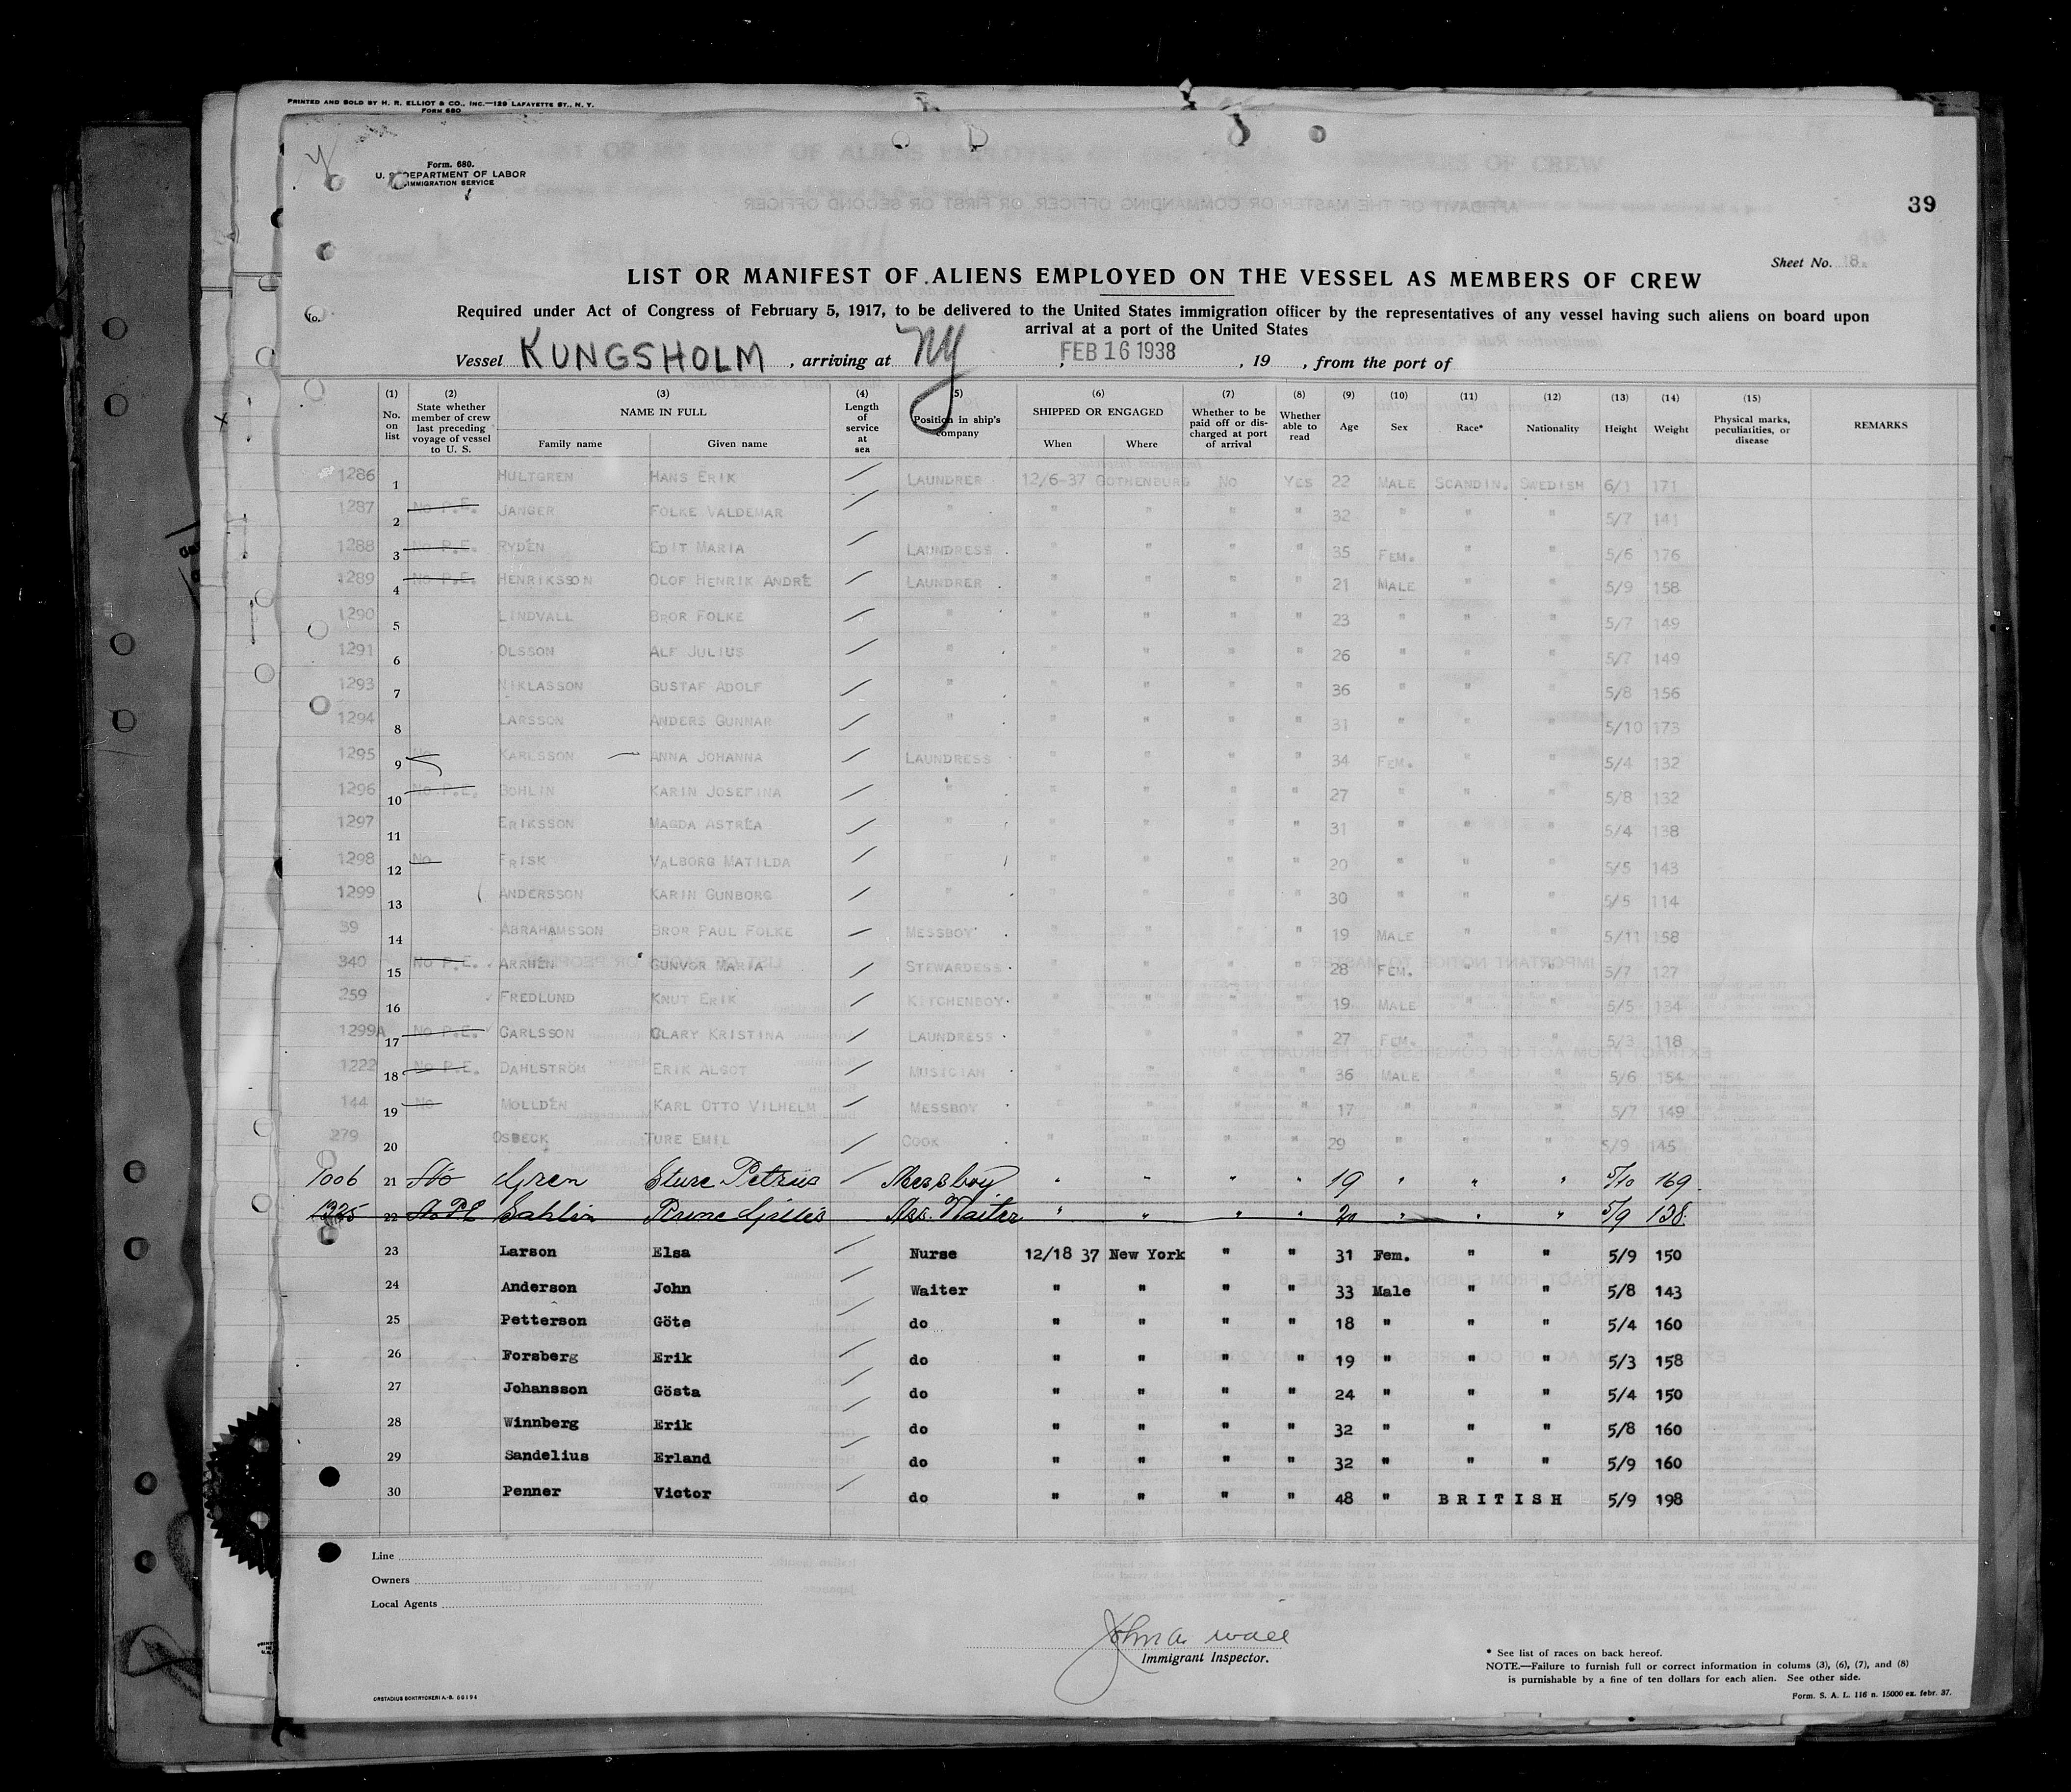 PRINTED AND SOLD BY H. R. ELLIOT & CO., INC.—129 LAFAYETTE ST., N. Y.
FORM 680
Form. 680.
U. S. DEPARTMENT OF LABOR
IMMIGRATION SERVICE
39
Sheet No. 18
LIST OR MANIFEST OF ALIENS EMPLOYED ON THE VESSEL AS MEMBERS OF CREW
Required under Act of Congress of February 5, 1917, to be delivered to the United States immigration officer by the representatives of any vessel having such aliens on board upon
arrival at a port of the United States
Vessel KUNGSHOLM, arriving at NY, FEB 16 1938, 19 , from the port of
(1) No. on list (2) State whether member of crew last preceding voyage of vessel to U. S. (3) NAME IN FULL Family name Given name (4) Length of service at sea (5) Position in ship's company (6) SHIPPED OR ENGAGED When Where (7) Whether to be paid off or discharged at port of arrival (8) Whether able to read (9) Age (10) Sex (11) Race* (12) Nationality (13) Height (14) Weight (15) Physical marks, peculiarities, or disease REMARKS
1286 1 HULTGREN HANS ERIK LAUNDRER 12/6-37 GOTHENBURG NO YES 22 MALE SCANDIN. SWEDISH 6/1 171
1287 2 NO P.E. JANGER FOLKE VALDEMAR " " " " " 32 " " " 5/7 141
1288 3 NO P.E. RYDÉN EDIT MARIA LAUNDRESS " " " " 35 FEM. " " 5/6 176
1289 4 NO P.E. HENRIKSSON OLOF HENRIK ANDRÉ LAUNDRER " " " " 21 MALE " " 5/9 158
1290 5 LINDVALL BROR FOLKE " " " " " 23 " " " 5/7 149
1291 6 OLSSON ALF JULIUS " " " " " 26 " " " 5/7 149
1293 7 NIKLASSON GUSTAF ADOLF " " " " " 36 " " " 5/8 156
1294 8 LARSSON ANDERS GUNNAR " " " " " 31 " " " 5/10 173
1295 9 NO KARLSSON ANNA JOHANNA LAUNDRESS " " " " 34 FEM. " " 5/4 132
1296 10 NO P.E. BOHLIN KARIN JOSEFINA " " " " " 27 " " " 5/8 132
1297 11 ERIKSSON MAGDA ASTRÉA " " " " " 31 " " " 5/4 138
1298 12 NO FRISK VALBORG MATILDA " " " " " 20 " " " 5/5 143
1299 13 ANDERSSON KARIN GUNBORG " " " " " 30 " " " 5/5 114
39 14 ABRAHAMSSON BROR PAUL FOLKE MESSBOY " " " " 19 MALE " " 5/11 158
340 15 NO P.E. ARRHÉN GUNVOR MARIA STEWARDESS " " " " 28 FEM. " " 5/7 127
259 16 FREDLUND KNUT ERIK KITCHENBOY " " " " 19 MALE " " 5/5 134
1299A 17 NO P.E. CARLSSON CLARY KRISTINA LAUNDRESS " " " " 27 FEM. " " 5/3 118
1222 18 NO P.E. DAHLSTRÖM ERIK ALGOT MUSICIAN " " " " 36 MALE " " 5/6 154
144 19 NO MOLLDÉN KARL OTTO VILHELM MESSBOY " " " " 17 " " " 5/7 149
279 20 OSBECK TURE EMIL COOK " " " " 29 " " " 5/9 145
1006 21 No Gren Sture Petrus Messboy " " " " 19 " " " 5/10 169
1325 22 No PE Sahlin Gillis Ass. Waiter " " " " 20 " " " 5/9 138
23 Larson Elsa Nurse 12/18 37 New York " " 31 Fem. " " 5/9 150
24 Anderson John Waiter " " " " 33 Male " " 5/8 143
25 Petterson Göte do " " " " 18 " " " 5/4 160
26 Forsberg Erik do " " " " 19 " " " 5/3 158
27 Johansson Gösta do " " " " 24 " " " 5/4 150
28 Winnberg Erik do " " " " 32 " " " 5/8 160
29 Sandelius Erland do " " " " 32 " " " 5/9 160
30 Penner Victor do " " " " 48 " BRITISH 5/9 198
Line
Owners
Local Agents
John A. Wall
Immigrant Inspector.
* See list of races on back hereof.
NOTE.—Failure to furnish full or correct information in colums (3), (6), (7), and (8)
is punishable by a fine of ten dollars for each alien. See other side.
ORSTADIUS BOKTRYCKERI A.-B. 50194
Form. S. A. L. 116 n. 15000 ex. febr. 37.